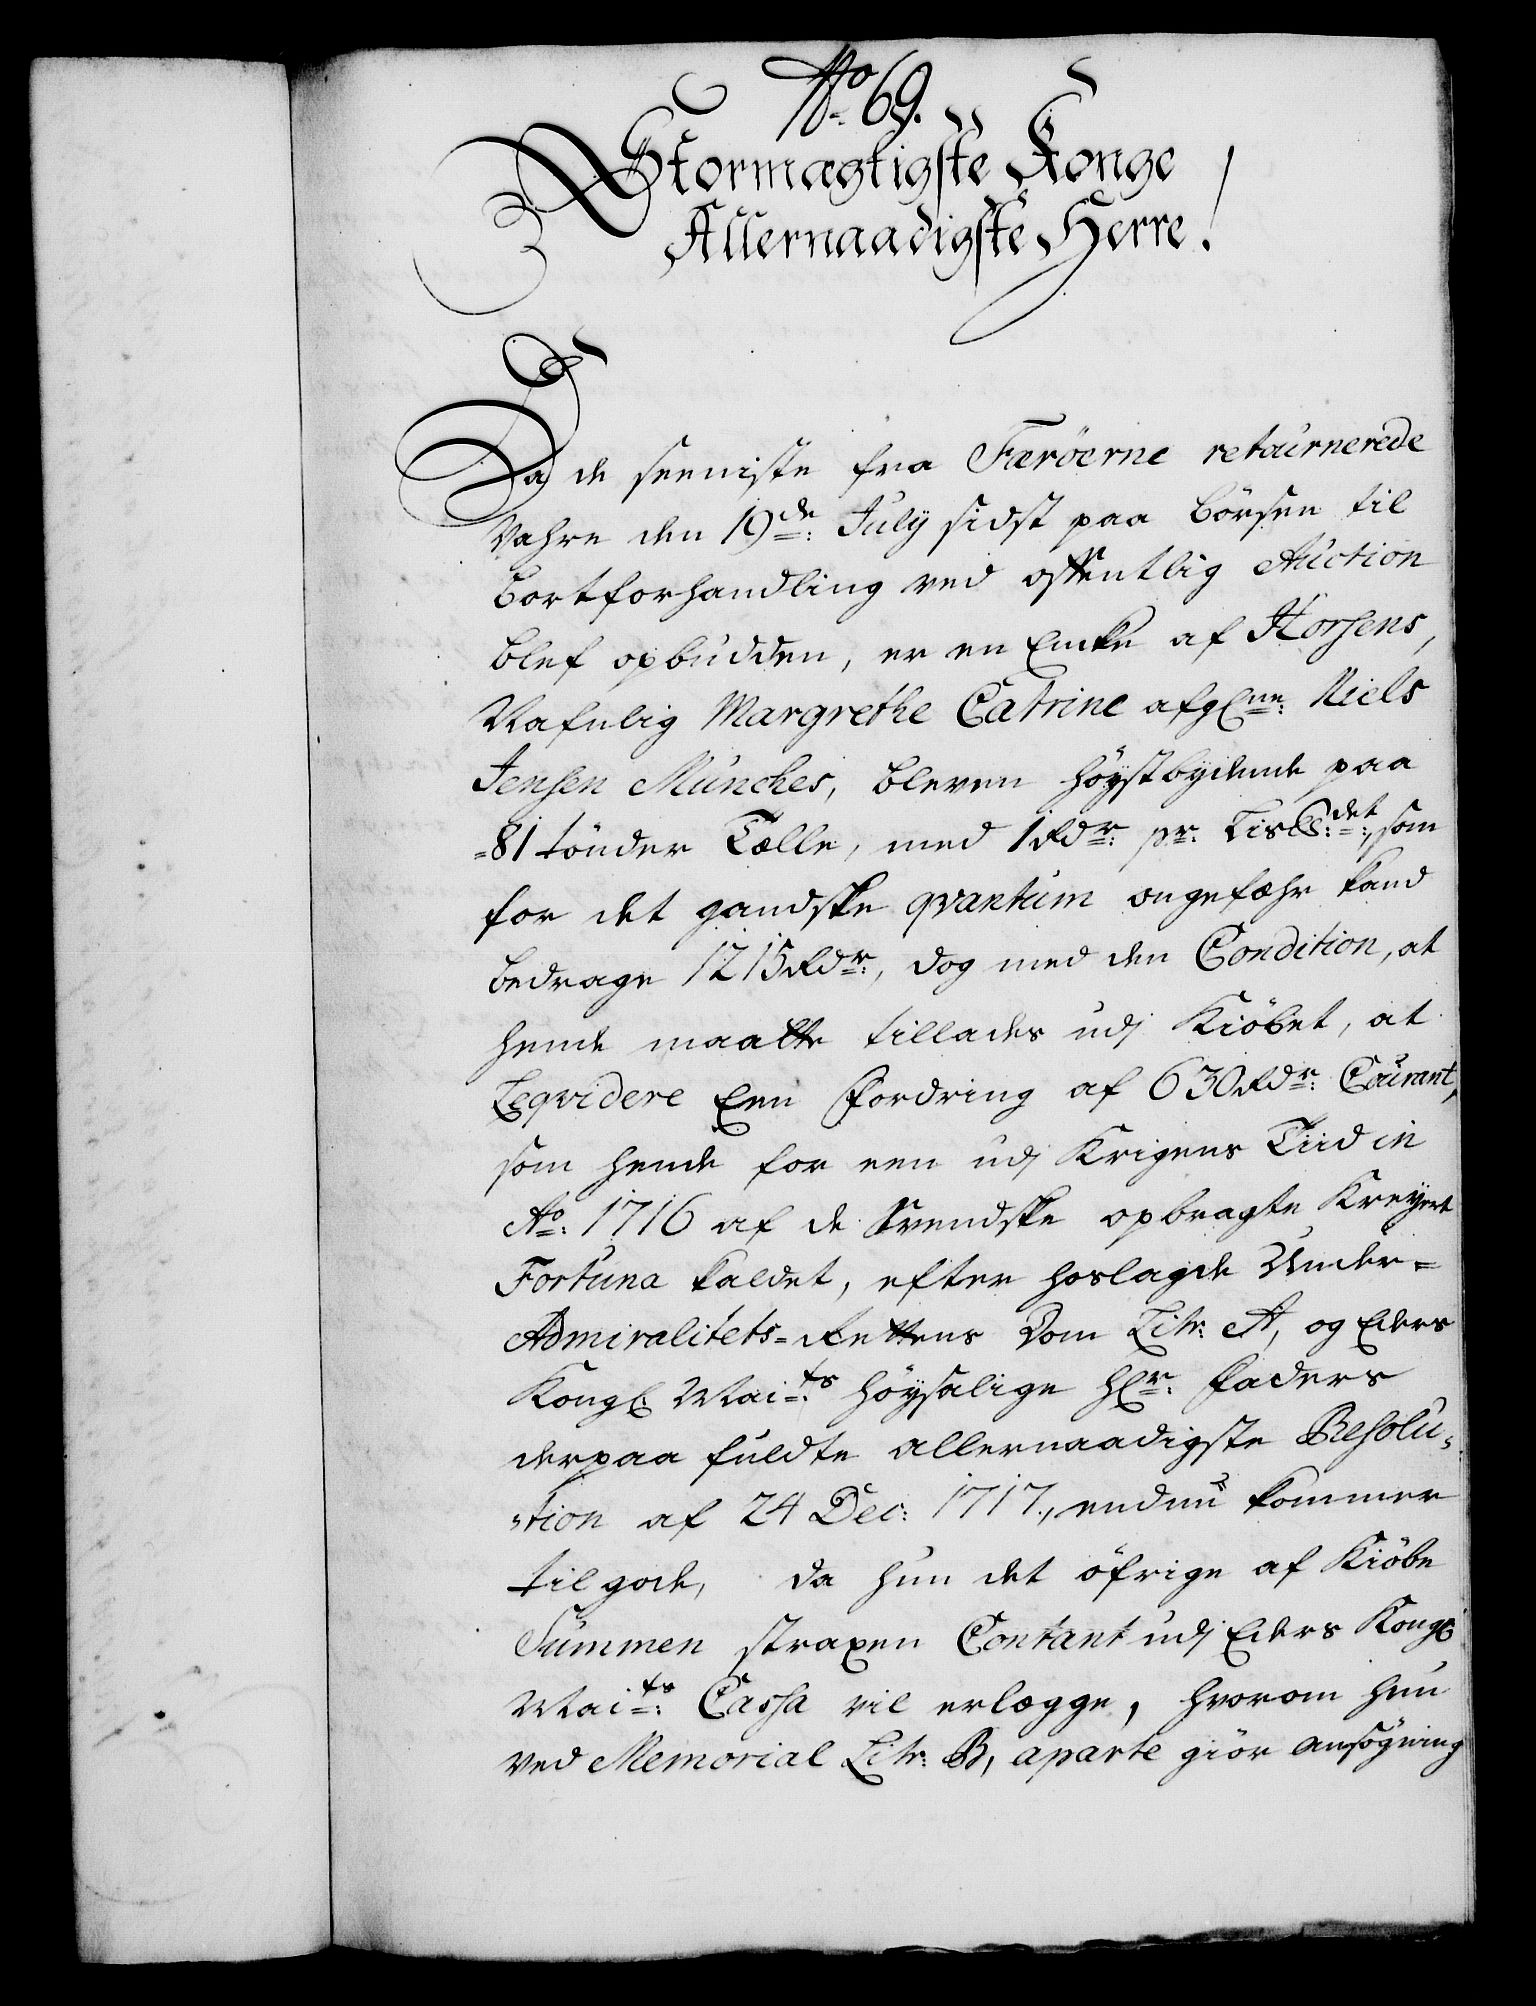 No 69.
Stormægtigste Konge
Allernaadigste Herre!
Da de seeniste fra Færöerne retournerede
Vahre den 19de: July sidst paa Börsen til
bortforhandling ved offentlig Auction
blef opbudden, er en Encke af Horsens,
Nafnlig Margrethe Catrine afgl:ne: Niels
Jenssen Münches, bleven höystbydende paa
-81 tönder Tælle, med 1 Rdr: pr: Lis℔:det:, som
for det gandske qvantum ongefæhr kand
bedrage 1215 Rdr:, dog med den Condition, at
hende maatte tillades udj Kiöbet, at
Leqvidere Een Fordring af 630 Rdr: Courant,
som hende for een udj Krigens Tiid in
Ao: 1716 af de Svendske opbragte Kreyert
Fortuna kaldet, efter hoslagde Under=
Admiralitets=Rettens Dom Litr: A, og Eders
Kongl: Mai:ts höysalige Hr: Faders
derpaa fuldte allernaadigste Resolu-
-tion af 24 Dec: 1717., endnu kommer
tilgode, da hun det öfrige af Kiöbe
Summen straxen Contant udj Eders Kongl
Mai:ts: Cassa vil erlægge, hvorom hun
ved Memorial Litr: B, aparte giör ansögning